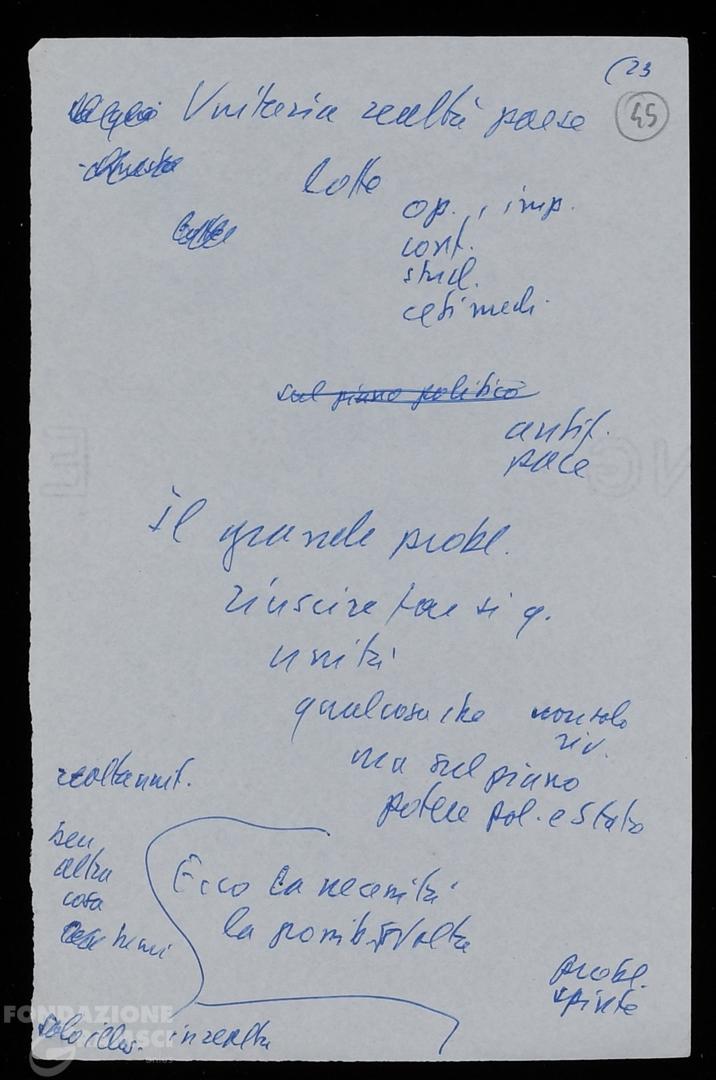 (23
45
Unitaria realtà paese
lotte
op., imp.
cont.
stud.
ceti medi.
sul piano politico
antif.
pace
Il grande probl.
riuscire far sì q.
unità
qualcosa che non solo
riv.
ma sul piano
potere pol. e Stato
realtà unit.
ben
altra
cosa
Ecco la necessità
la possib. svolta
probl.
spinte
solo illus. in realtà
FONDAZIONE
GRAMSCI
ONLUS